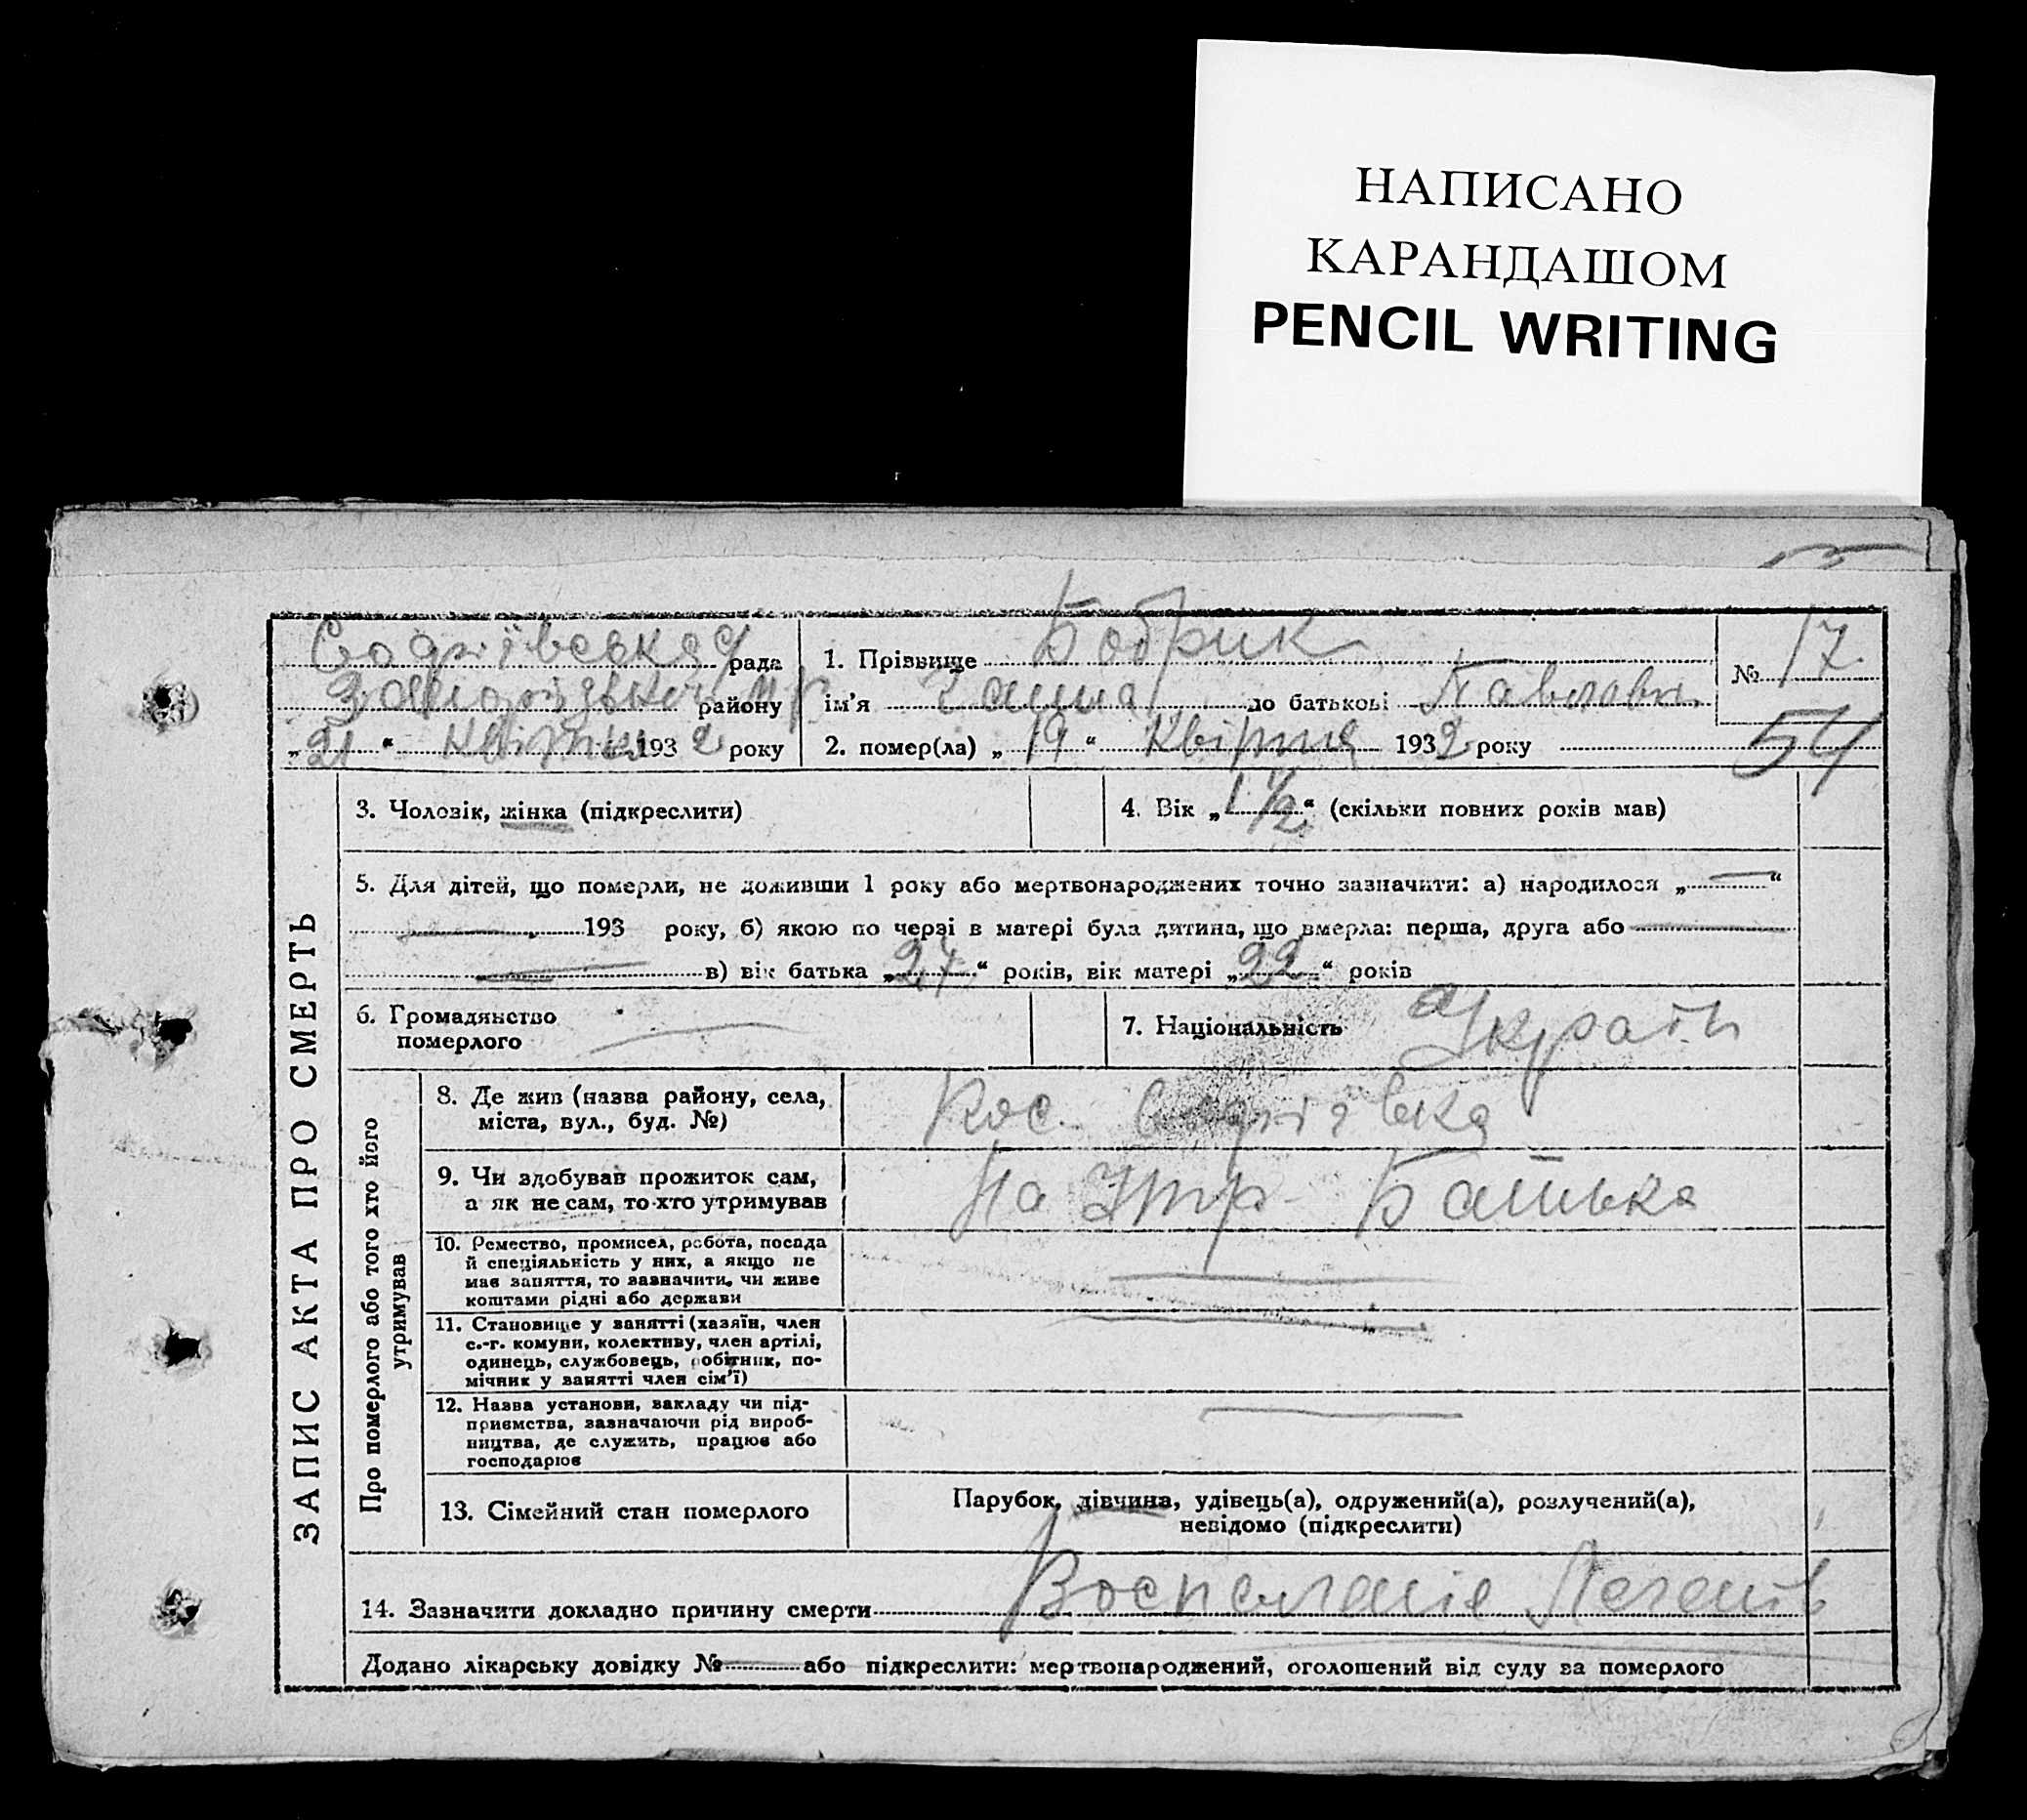 НАПИСАНО
КАРАНДАШОМ
PENCIL WRITING
рада
району
„21“ квітня 1932 року
1. Прізвище Бобрик
ім'я Ганна по батькові Павловн.
2. помер(ла) „19“ Квітня 1932 року
№ 17
54
ЗАПИС АКТА ПРО СМЕРТЬ
3. Чоловік, жінка (підкреслити)
4. Вік „1 ½“ (скільки повних років мав)
5. Для дітей, що померли, не доживши 1 року або мертвонароджених точно зазначити: а) народилося „—“
193 року, б) якою по черзі в матері була дитина, що вмерла: перша, друга або
в) вік батька „24“ років, вік матері „22“ років
6. Громадянство
померлого
7. Національність Україн
Про померлого або того хто його
утримував
8. Де жив (назва району, села,
міста, вул., буд. №)
9. Чи здобував прожиток сам,
а як не сам, то-хто утримував
На Утр. Батька
10. Ремество, промисел, робота, посада
й спеціяльність у них, а якщо не
мав заняття, то зазначити, чи живе
коштами рідні або держави
11. Становище у занятті (хазяїн, член
с.-г. комуни, колективу, член артілі,
одинець, службовець, робітник, по-
мічник у занятті член сім'ї)
12. Назва установи, закладу чи під-
приємства, зазначаючи рід вироб-
ництва, де служить, працює або
господарює
13. Сімейний стан померлого
Парубок, дівчина, удівець(а), одружений(а), розлучений(а),
невідомо (підкреслити)
14. Зазначити докладно причину смерти
Додано лікарську довідку № або підкреслити: мертвонароджений, оголошений від суду за померлого